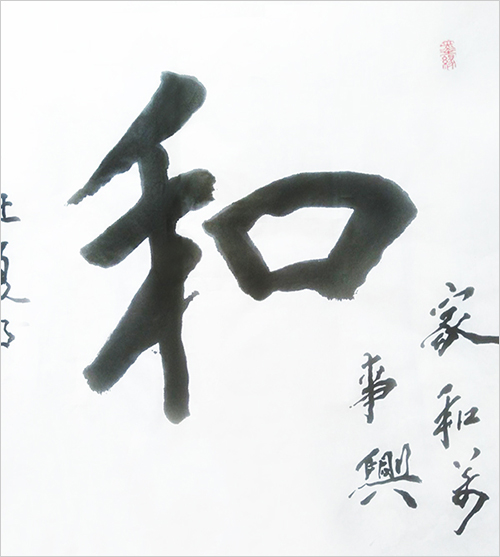 和
家和萬
事興